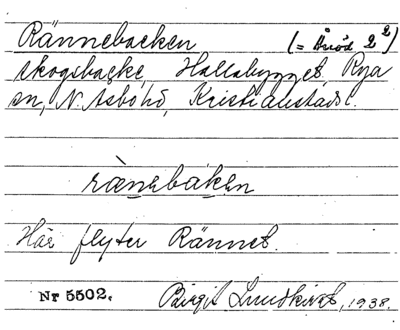 Rännebacken (= Åröd 2²)
skogsbacke, Hallabygget Rya
sn, N. Åsbo hd, Kristianstads l.
rànebakẹn
Här flyter Rännet.
Nr 5502. Birgit Lundkvist, 1938.